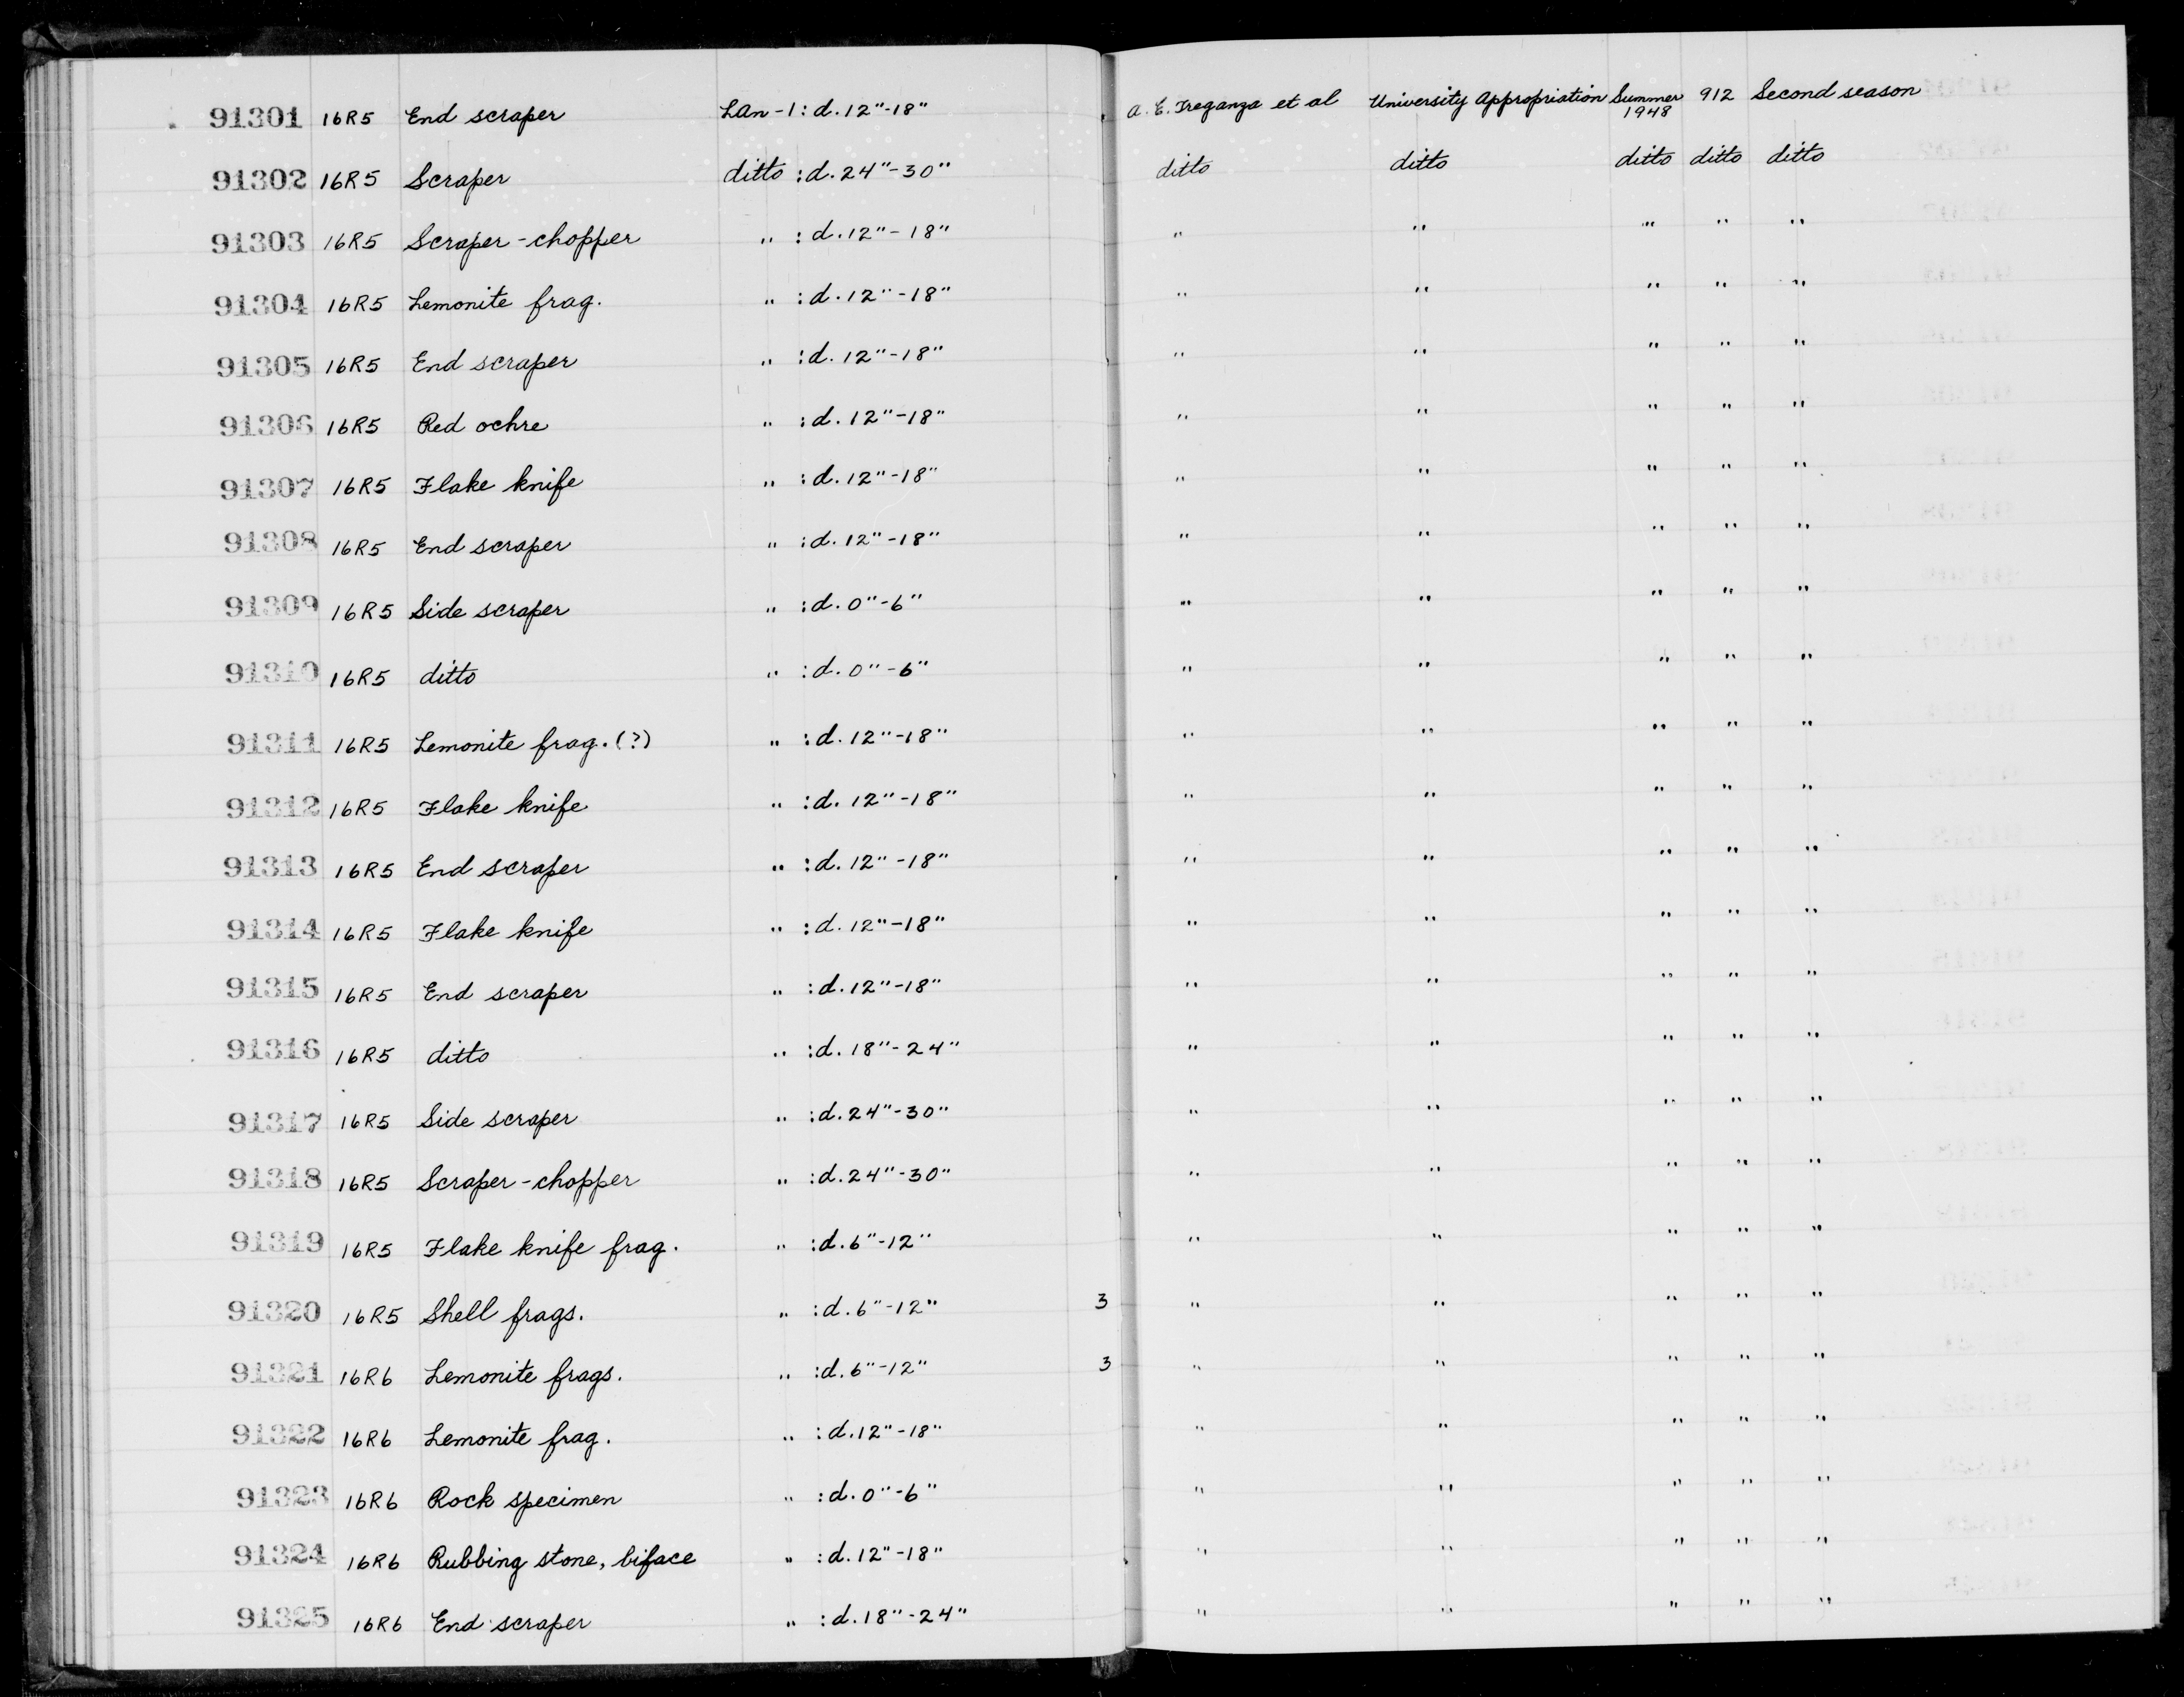 91301 16R5 End scraper LAn-1 : d. 12"-18" A. E. Treganza et al University Appropriation Summer 1948 912 Second season
91302 16R5 Scraper ditto : d. 24"-30" ditto ditto ditto ditto ditto
91303 16R5 Scraper-chopper " : d. 12"-18" " " " " "
91304 16R5 Lemonite frag. " : d. 12"-18" " " " " "
91305 16R5 End scraper " : d. 12"-18" " " " " "
91306 16R5 Red ochre " : d. 12"-18" " " " " "
91307 16R5 Flake knife " : d. 12"-18" " " " " "
91308 16R5 End scraper " : d. 12"-18" " " " " "
91309 16R5 Side scraper " : d. 0"-6" " " " " "
91310 16R5 ditto " : d. 0"-6" " " " " "
91311 16R5 Lemonite frag. (?) " : d. 12"-18" " " " " "
91312 16R5 Flake knife " : d. 12"-18" " " " " "
91313 16R5 End scraper " : d. 12"-18" " " " " "
91314 16R5 Flake knife " : d. 12"-18" " " " " "
91315 16R5 End scraper " : d. 12"-18" " " " " "
91316 16R5 ditto " : d. 18"-24" " " " " "
91317 16R5 Side scraper " : d. 24"-30" " " " " "
91318 16R5 Scraper-chopper " : d. 24"-30" " " " " "
91319 16R5 Flake knife frag. " : d. 6"-12" " " " " "
91320 16R5 Shell frags. " : d. 6"-12" 3 " " " " "
91321 16R6 Lemonite frags. " : d. 6"-12" 3 " " " " "
91322 16R6 Lemonite frag. " : d. 12"-18" " " " " "
91323 16R6 Rock specimen " : d. 0"-6" " " " " "
91324 16R6 Rubbing stone, biface " : d. 12"-18" " " " " "
91325 16R6 End scraper " : d. 18"-24" " " " " "